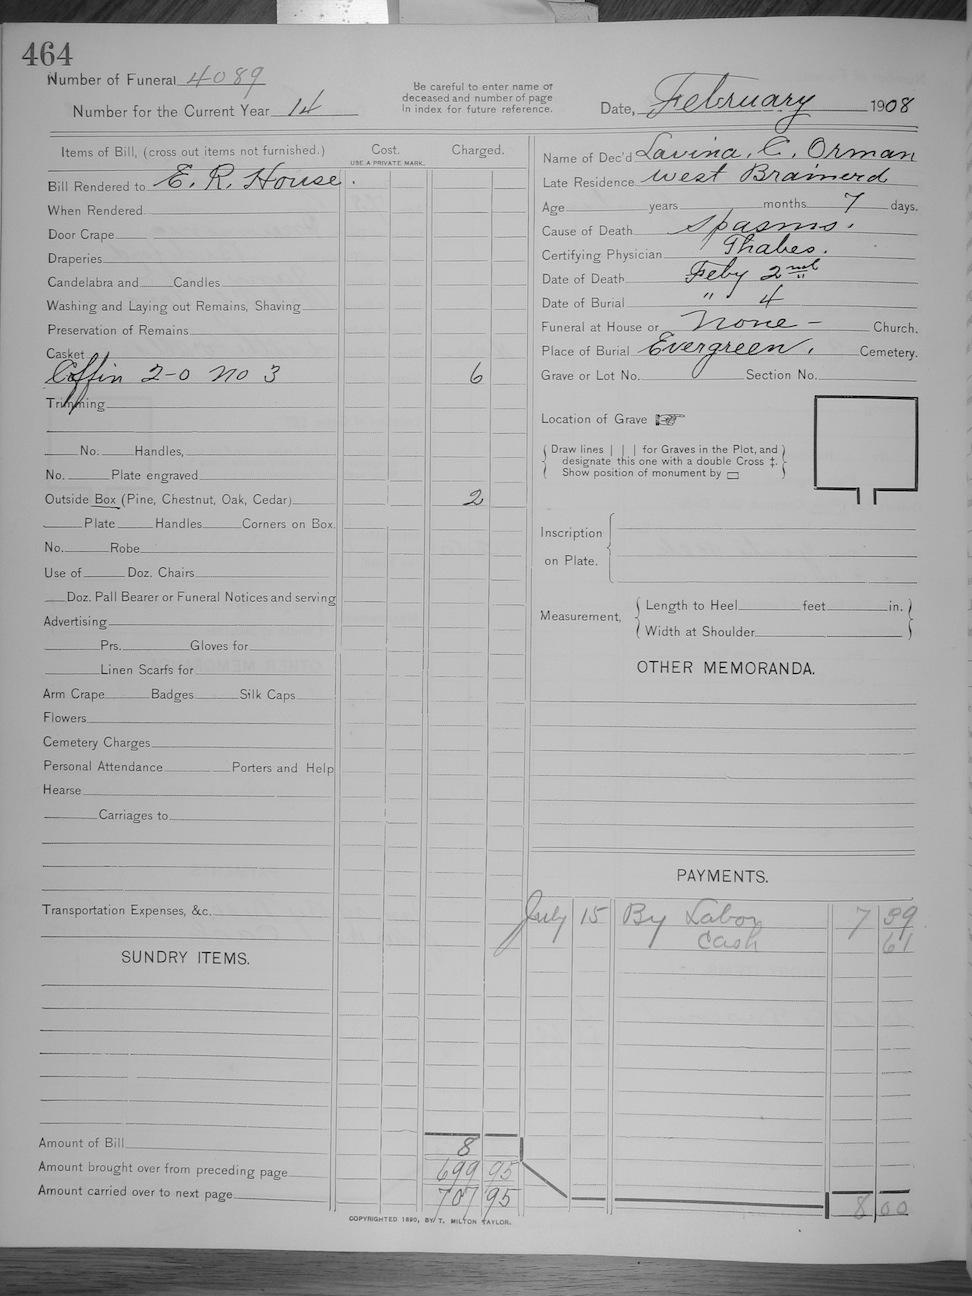 464
Number of Funeral 4089
Number for the Current Year 14
Be careful to enter name of
deceased and number of page
in index for future reference.
Date, February 1908
Items of Bill, (cross out items not furnished.) Cost. Charged.
USE A PRIVATE MARK.
Bill Rendered to E. R. House.
When Rendered
Door Crape
Draperies
Candelabra and Candles
Washing and Laying out Remains, Shaving
Preservation of Remains
Casket
Coffin 2-0 No 3 6
Trimming
No. Handles,
No. Plate engraved
Outside Box (Pine, Chestnut, Oak, Cedar) 2
Plate Handles Corners on Box.
No. Robe
Use of Doz. Chairs
Doz. Pall Bearer or Funeral Notices and serving
Advertising
Prs. Gloves for
Linen Scarfs for
Arm Crape Badges Silk Caps
Flowers
Cemetery Charges
Personal Attendance Porters and Help
Hearse
Carriages to
Transportation Expenses, &c.
SUNDRY ITEMS.
Amount of Bill 8
Amount brought over from preceding page 699 95
Amount carried over to next page 707 95
COPYRIGHTED 1890, BY T. MILTON TAYLOR.
Name of Dec'd Lavina. C. Orman
Late Residence West Brainerd
Age years months 7 days.
Cause of Death Spasms.
Certifying Physician Thabes.
Date of Death Feby 2nd
Date of Burial " 4
Funeral at House or None - Church.
Place of Burial Evergreen. Cemetery.
Grave or Lot No. Section No.
Location of Grave
Draw lines | | | for Graves in the Plot, and
designate this one with a double Cross ‡.
Show position of monument by ▭
Inscription
on Plate.
Measurement, Length to Heel feet in.
Width at Shoulder
OTHER MEMORANDA.
PAYMENTS.
July 15 By Labor 7 39
Cash 61
8 00